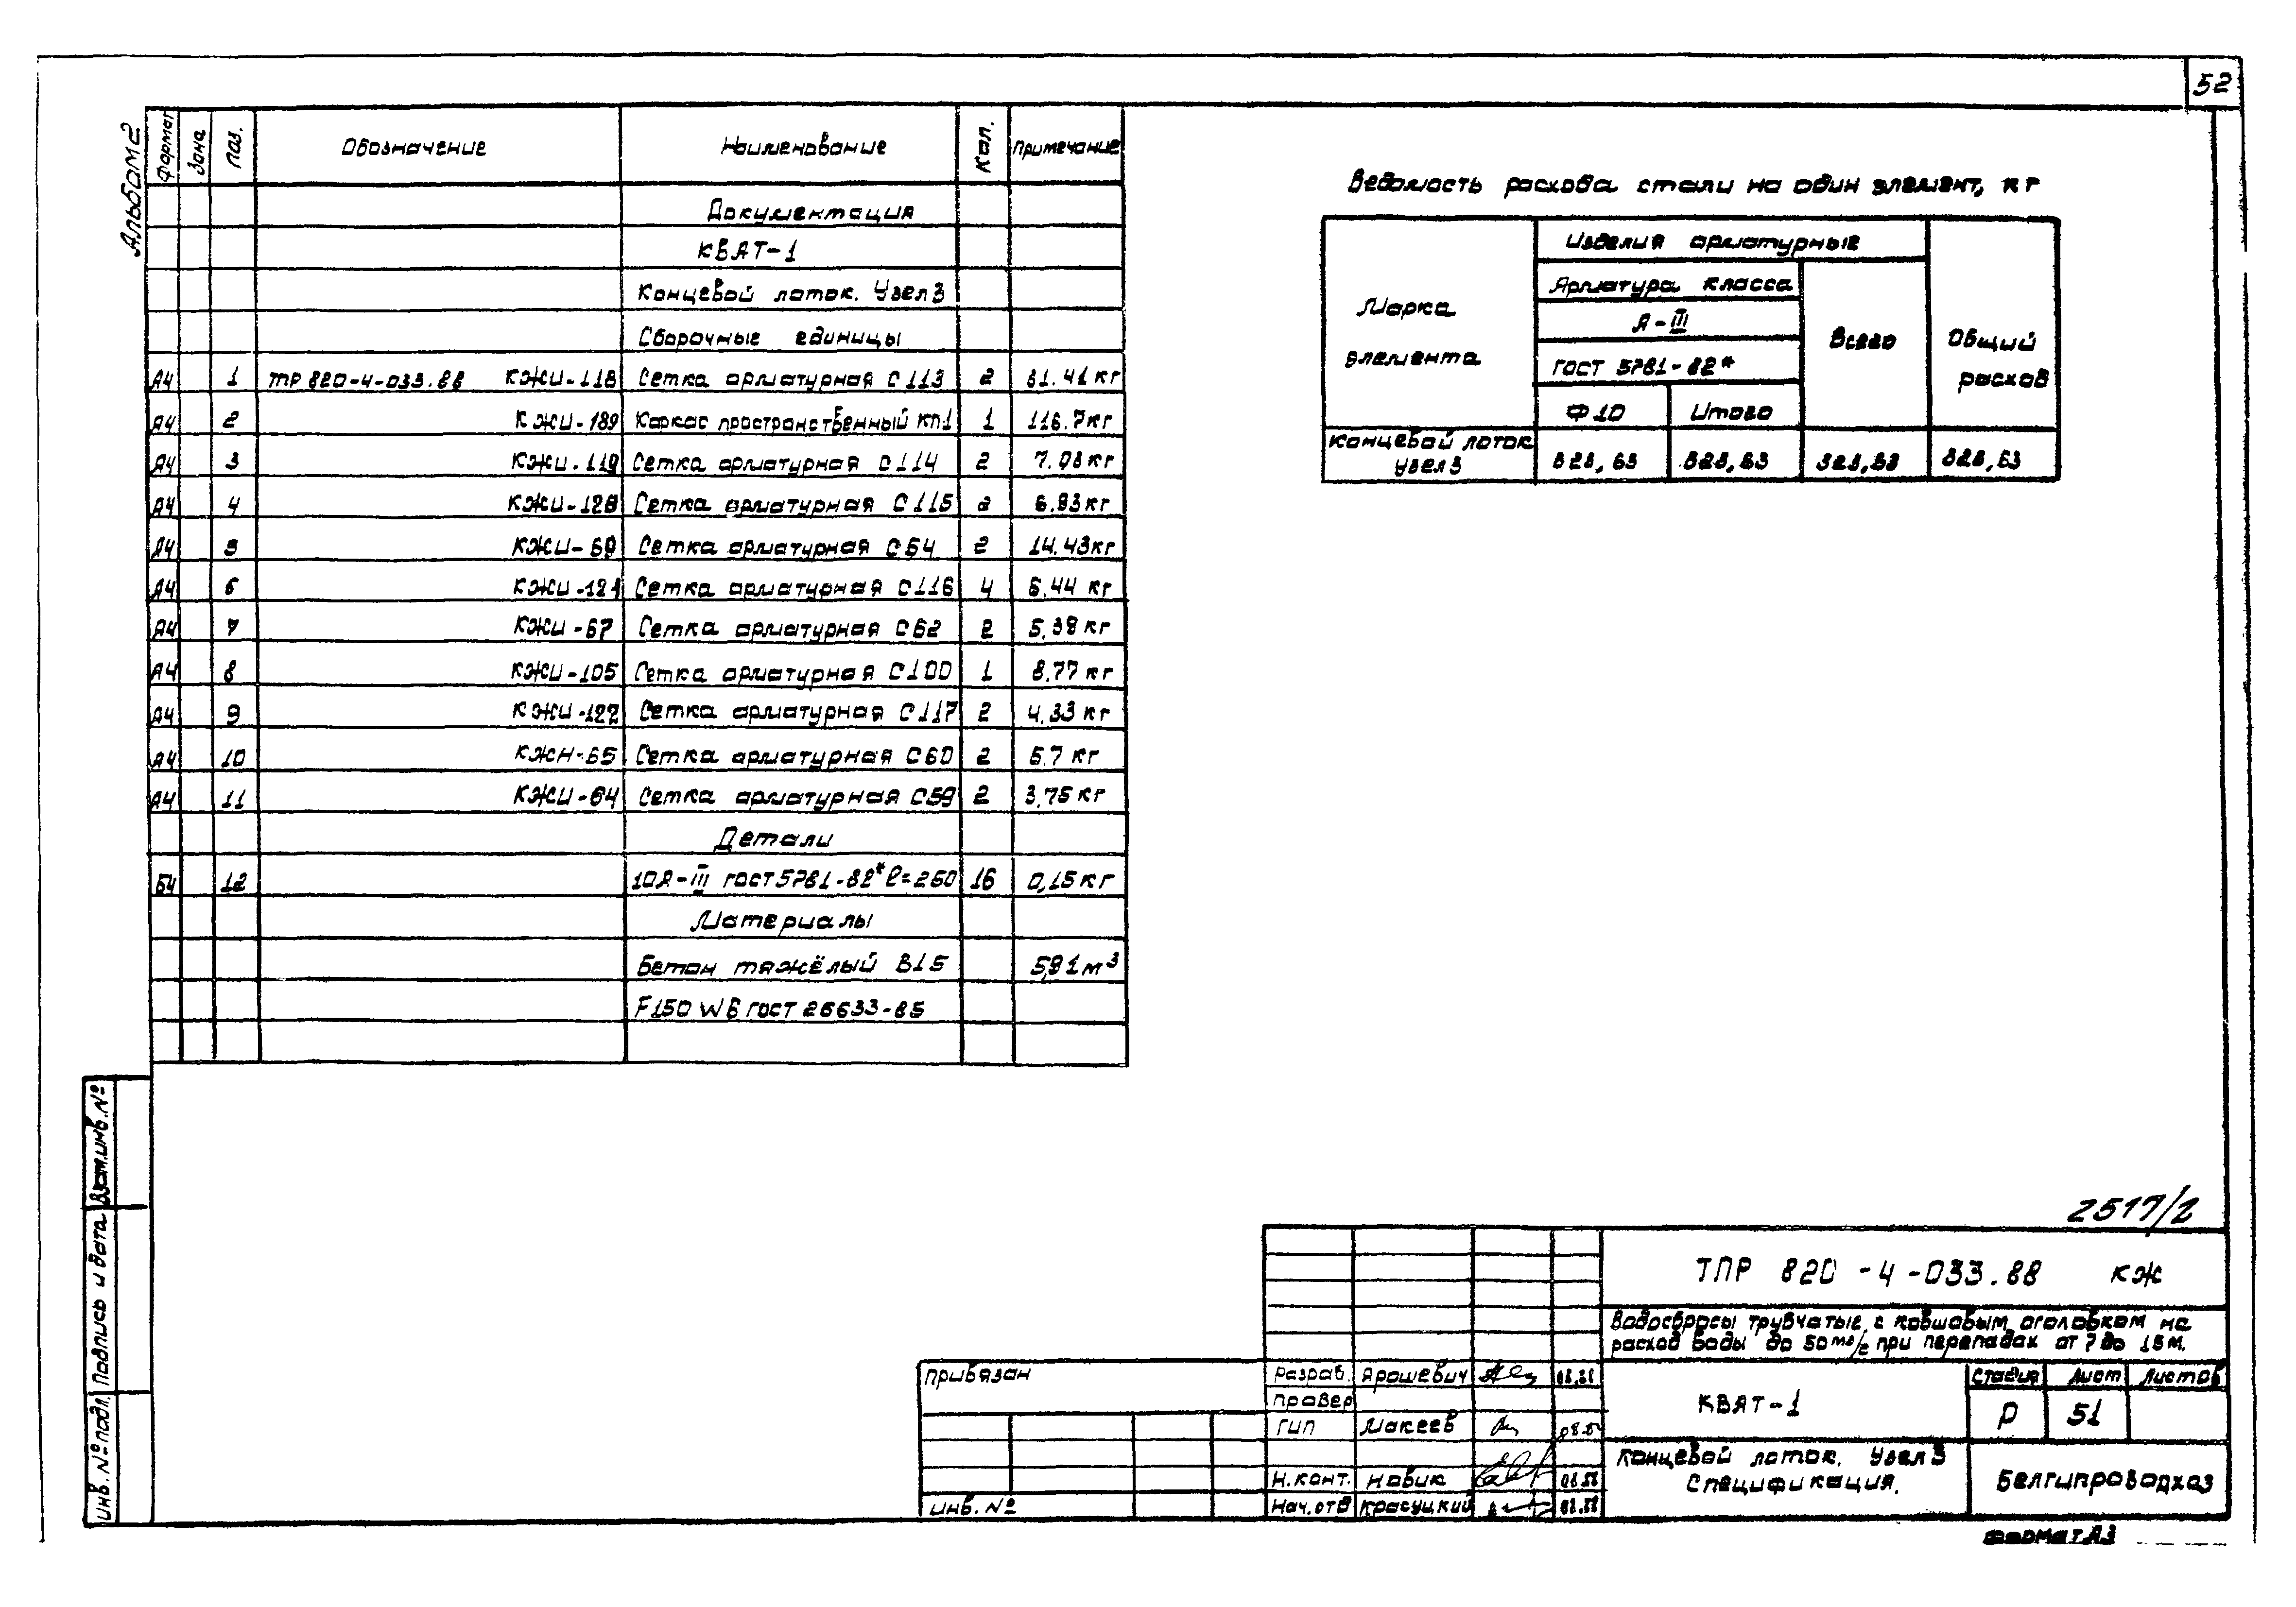 52
Альбом 2
Формат Зона Поз. Обозначение Наименование Кол. Примечание
Документация
КВАТ-1
Концевой лоток. Узел 3
Сборочные единицы
А4 1 ТПР 820-4-033.88 КЖИ-118 Сетка арматурная С113 2
А4 2 КЖИ-189 Каркас пространственный КП1 1 116.7 кг
А4 3 КЖИ-119 Сетка арматурная С114 2
А4 4 Сетка арматурная С115 2 6.93 кг
А4 5 КЖИ-69 Сетка арматурная С64 2 14.43 кг
А4 6 КЖИ-121 Сетка арматурная С116 4 6.44 кг
А4 7 КЖИ-67 Сетка арматурная С62 2 5,38 кг
А4 8 КЖИ-105 Сетка арматурная С100 1 8.77 кг
А4 9 КЖИ-122 Сетка арматурная С117 2 4.33 кг
А4 10 КЖИ-65 Сетка арматурная С60 2 5.7 кг
А4 11 КЖИ-64 Сетка арматурная С59 2 3,75 кг
Детали
Б4 12 10А-III ГОСТ 5781-82* ℓ=250 16 0,15 кг
Материалы
Бетон тяжёлый В15 5,91 м³
F150 W6 ГОСТ 26633-85
Ведомость расхода стали на один элемент, кг
Марка элемента
Изделия арматурные
Арматура класса
А-III
ГОСТ 5781-82*
Ф10 Итого
Всего
Общий расход
Концевой лоток
Узел 3
328,63 328,63 328,63 328,63
Взам.инв.№
Подпись и дата
Инв.№ подл.
2517/2
ТПР 820-4-033.88 КЖ
Водосбросы трубчатые с ковшовым оголовком на
расход воды до 50 м³/с при перепадах от 7 до 15 м.
Привязан
Инв. №
Разраб. Ярошевич
Провер
ГИП Макеев
Н.конт. Новик 08.88
Нач.отд Красуцкий 08.88
КВАТ-1
Стадия Лист Листов
Р 51
Концевой лоток. Узел 3
Спецификация.
Белгипроводхоз
Формат А3